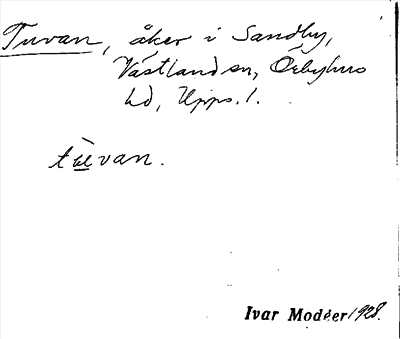 Tuvan, åker i Sandby,
Västland sn, Örbyhus
hd, Upps. l.
tùvan.
Ivar Modéer 1928.